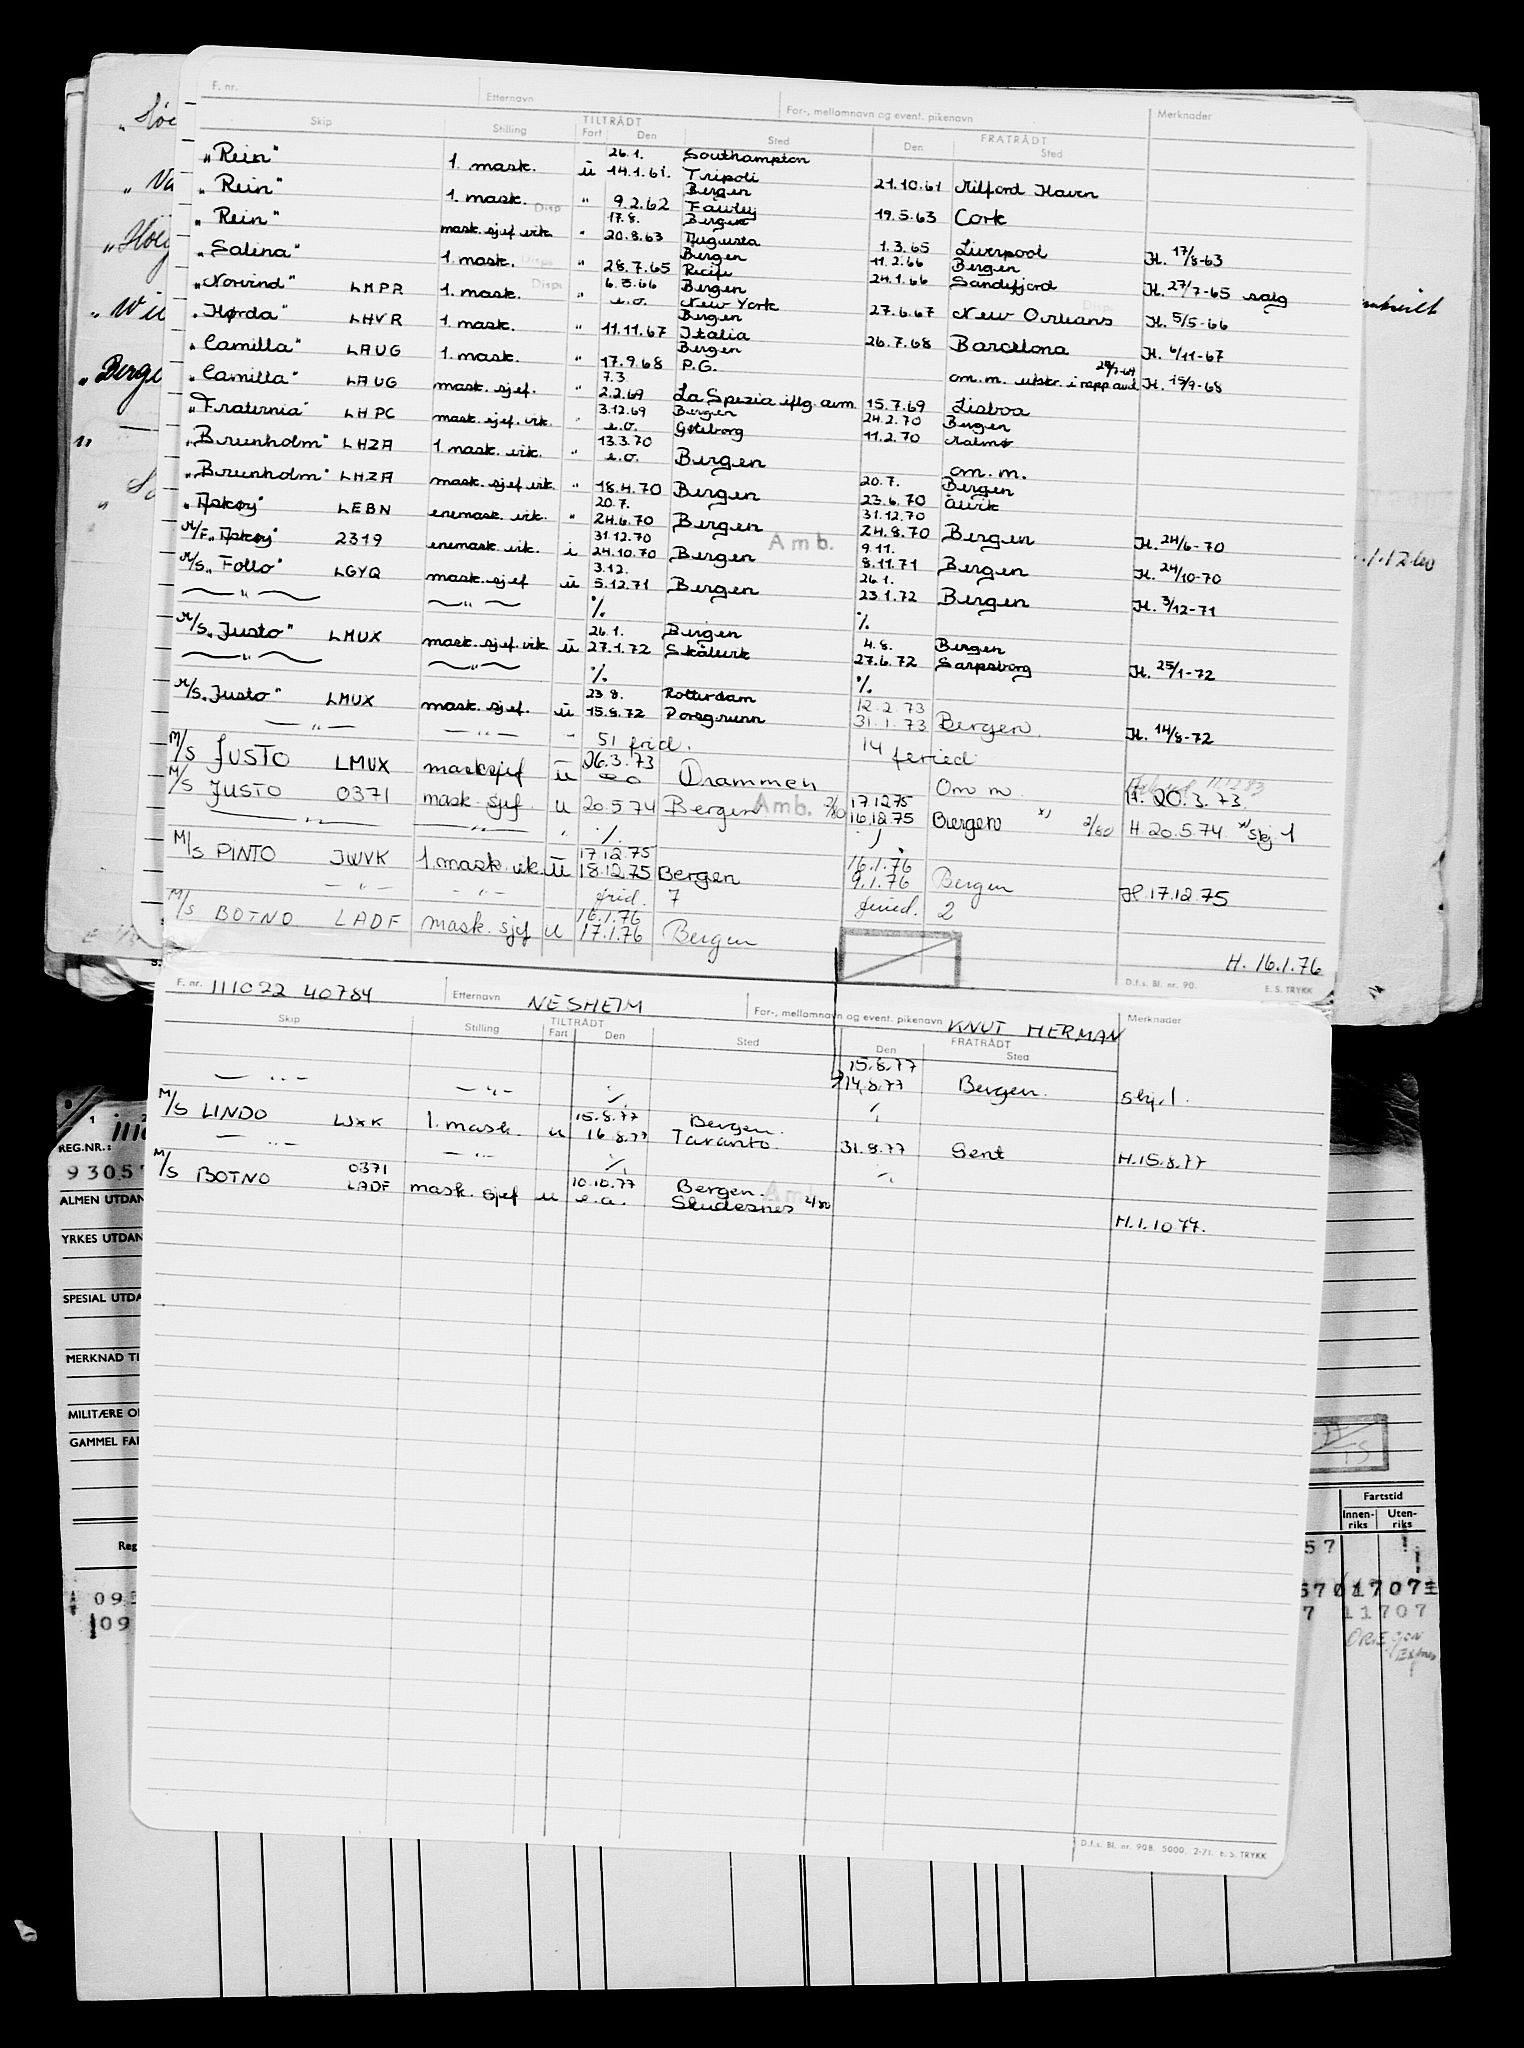 F. nr. Etternavn For-, mellomnavn og event. pikenavn Merknader
Skip Stilling TILTRÅDT Fart Den Sted FRATRÅDT Den Sted
26.1. Southampton
„Rein" 1. mask. u 14.1.61. Tripoli 21.10.61 Milford Haven
Bergen
„Rein" 1. mask. Disp " 9.2.62 Fawley 19.5.63 Cork
17.8. Bergen
„Rein" mask. sjef vik. " 20.8.63 Augusta 1.3.65 Liverpool H. 17/8-63
Bergen 11.2.66 Bergen
„Salina" 1. mask. Disp " 28.7.65 Recife 24.1.66 Sandefjord H. 27/7-65 salg
6.5.66 Bergen
„Norvind" LMPR 1. mask. Disp " e.o. New York 27.6.67 New Orleans H. 5/5-66
Bergen
„Horda" LHVR 1. mask. " 11.11.67 Italia 26.7.68 Barcelona H. 6/11-67
Bergen
„Camilla" LAUG 1. mask. " 17.9.68 P.G. om.m. utskr. i rapp H. 15/9-68
7.3
„Camilla" LAUG mask. sjef. 2.2.69 La Spezia iflg. avm. 15.7.69 Lisboa
3.12.69 Bergen 24.2.70 Bergen
„Fraternia" LHPC mask. sjef. vik. e.o. Gøteborg 11.2.70 Malmø
13.3.70
„Brunholm" LHZA 1. mask. vik. " e.o. Bergen om. m.
20.7. Bergen
„Brunholm" LHZA mask. sjef vik " 18.4.70 Bergen 23.6.70 Ålvik
20.7. 31.12.70
„Askøy" LEBN enemask. vik. " 24.6.70 Bergen 24.8.70 Bergen H. 24/6-70
31.12.70 Amb. 9.11.
M/F„Askøy" 2319 enemask. vik. i 24.10.70 Bergen 8.11.71 Bergen H. 24/10-70
3.12. 26.1.
M/S„Follo" LGYQ mask. sjef u 5.12.71 Bergen 23.1.72 Bergen H. 3/12-71
— " — — " — % %
26.1. Bergen 4.8. Bergen
M/S„Justo" LMUX mask. sjef. vik u 27.1.72 Skålevik 27.6.72 Sarpsborg H. 25/1-72
— " — — " — % %
23.8. Rotterdam 12.2.73
M/S„Justo" LMUX mask. sjef. u 15.8.72 Porsgrunn 31.1.73 Bergen. H. 14/8-72
— " — — " — - 51 frid. 14 feried
26.3.73
M/S JUSTO LMUX masksjef u eo Drammen Om m. H. 20.3.73
M/S JUSTO 0371 mask. sjef. u 20.5.74 Bergen Amb. 2/80 17.12.75 16.12.75 Bergen x) 2/80 H. 20.5.74 x) skj. 1
— " — — " — " % %
17.12.75 16.1.76
M/S PINTO JWVK 1. mask. vik. u 18.12.75 Bergen 9.1.76 Bergen H. 17.12.75
— " — — " — frid. 7 feried. 2
16.1.76
M/S BOTNO LADF mask. sjef u 17.1.76 Bergen
H. 16.1.76
D.f.s. Bl. nr. 90. E. S. TRYKK
F. nr. 111022 40784 Etternavn NESHEIM For-, mellomnavn og event. pikenavn KNUT HERMAN Merknader
Skip Stilling TILTRÅDT Fart Den Sted FRATRÅDT Den Sted
15.8.77
14.8.77 Bergen. skj. 1.
— " — — " — % %
15.8.77 Bergen.
M/S LINDO LJXK 1. mask. u 16.8.77 Taranto 31.8.77 Gent H. 15.8.77
— " — — " — % %
0371 10.10.77 Bergen.
M/S BOTNO LADF mask. sjef u e.o. Skudesnes 2/80
H. 1.10 77.
D.f.s. Bl. nr. 90B. 5000. 2-71. E. S. TRYKK
REG.NR.:
9305
ALMEN UTDAN
YRKES UTDAN
SPESIAL UTDA
MERKNAD TI
MILITÆRE O
GAMMEL FA
Fartstid
Innen-riks Uten-riks
Reg
11707